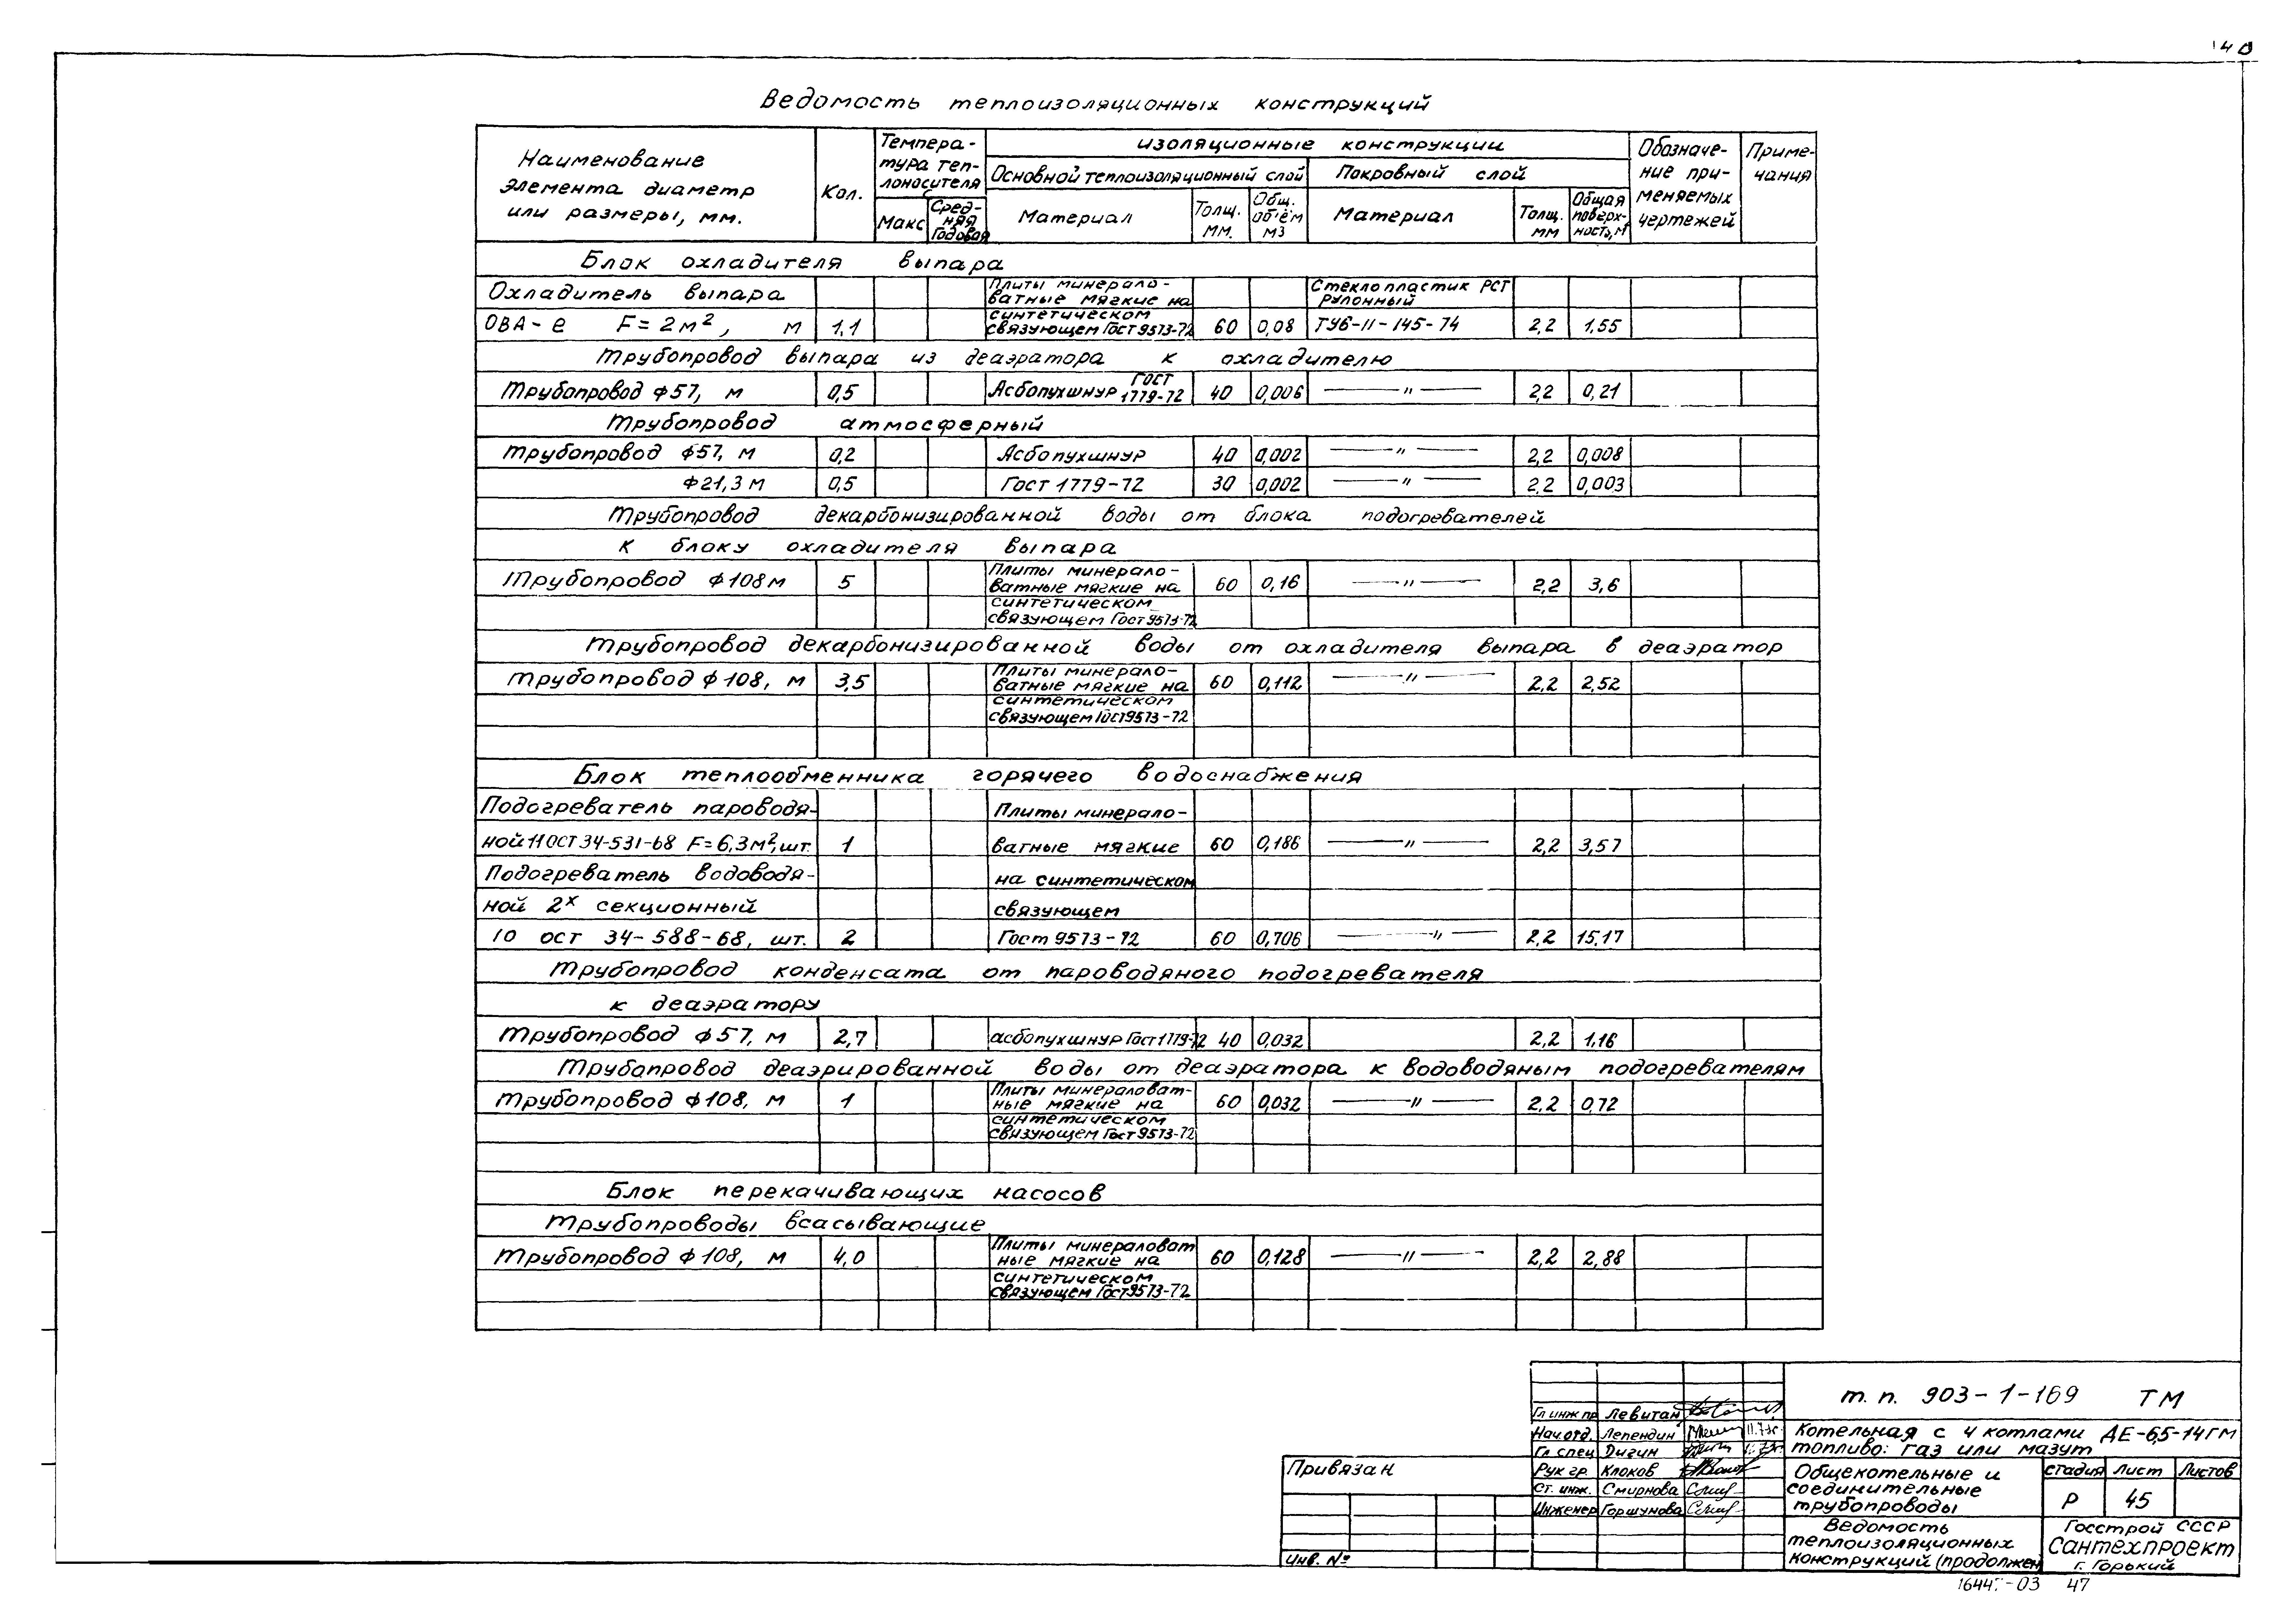 40
Ведомость теплоизоляционных конструкций
Наименование элемента диаметр или размеры, мм. Кол. Температура теплоносителя Изоляционные конструкции Обозначение применяемых чертежей Примечания
Основной теплоизоляционный слой Покровный слой
Макс Средняя годовая Материал Толщ. мм. Общ. объём м3 Материал Толщ. мм Общая поверхность, м²
Блок охладителя выпара
Охладитель выпара Плиты минерало- Стеклопластик РСТ
ватные мягкие на рулонный
ОВА-е F=2м², м 1,1 синтетическом связующем Гост 9573-72 60 0,08 ТУ6-11-145-74 2,2 1,55
Трубопровод выпара из деаэратора к охладителю
Трубопровод ф57, м 0,5 Асбопухшнур ГОСТ 1779-72 40 0,006 —〃— 2,2 0,21
Трубопровод атмосферный
Трубопровод ф57, м 0,2 Асбопухшнур 40 0,002 —〃— 2,2 0,008
ф21,3 м 0,5 Гост 1779-72 30 0,002 —〃— 2,2 0,003
Трубопровод декарбонизированной воды от блока подогревателей
к блоку охладителя выпара
Трубопровод ф108 м 5 Плиты минерало- 60 0,16 —〃— 2,2 3,6
ватные мягкие на
синтетическом
связующем Гост 9573-72
Трубопровод декарбонизированной воды от охладителя выпара в деаэратор
Трубопровод ф108, м 3,5 Плиты минерало- 60 0,112 —〃— 2,2 2,52
ватные мягкие на
синтетическом
связующем Гост 9573-72
Блок теплообменника горячего водоснабжения
Подогреватель пароводя- Плиты минерало-
ной 11 ОСТ 34-531-68 F=6,3м², шт. 1 ватные мягкие 60 0,186 —〃— 2,2 3,57
Подогреватель водоводя- на синтетическом
ной 2х секционный связующем
10 ост 34-588-68, шт. 2 Гост 9573-72 60 0,706 —〃— 2,2 15,17
Трубопровод конденсата от пароводяного подогревателя
к деаэратору
Трубопровод ф57, м 2,7 асбопухшнур Гост 1779-72 40 0,032 2,2 1,16
Трубопровод деаэрированной воды от деаэратора к водоводяным подогревателям
Трубопровод ф108, м 1 Плиты минераловат- 60 0,032 —〃— 2,2 0,72
ные мягкие на
синтетическом
связующем Гост 9573-72
Блок перекачивающих насосов
Трубопроводы всасывающие
Трубопровод ф108, м 4,0 Плиты минераловат 60 0,128 —〃— 2,2 2,88
ные мягкие на
синтетическом
связующем Гост 9573-72
т. п. 903-1-169 ТМ
Гл инж пр Левитан
Нач. отд. Лепендин
Гл спец Дигин
Рук гр. Клоков
Ст. инж. Смирнова
Инженер Горшунова
Котельная с 4 котлами ДЕ-6,5-14ГМ
топливо: газ или мазут
Общекотельные и
соединительные
трубопроводы
стадия Лист Листов
Р 45
Ведомость
теплоизоляционных
конструкций (продолжен
Госстрой СССР
Сантехпроект
г. Горький
Привязан
Инв. №
47